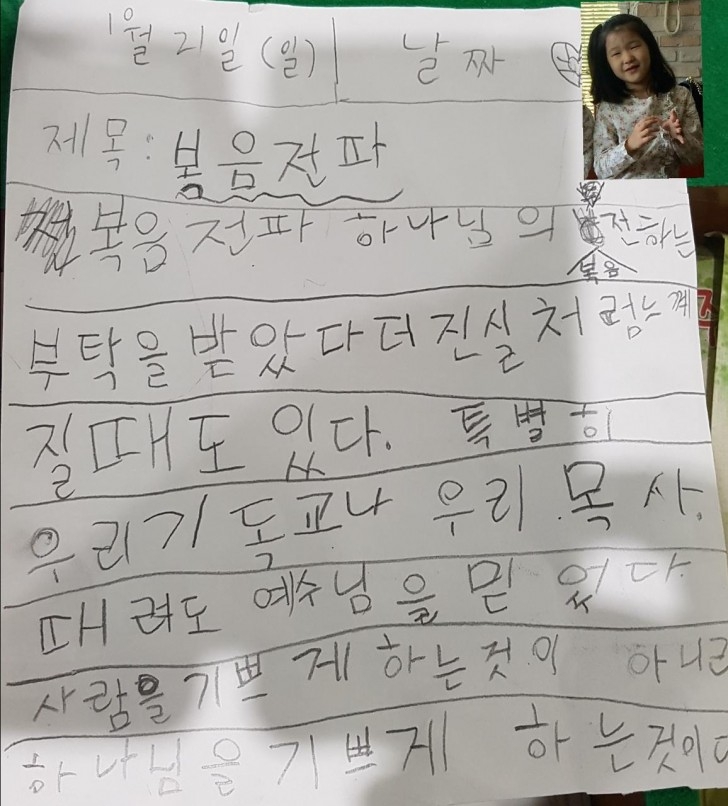 1월 21일 (일) 날짜
제목: 복음전파
복음 전파 하나님의 전하는
복음
부탁을 받았다 더 진실처럼 느껴
질때도 있다. 특별히
우리기독교나 우리 목사.
때려도 예수님을 믿었다.
사람을 기쁘게 하는것이 아니라
하나님을 기쁘게 하는것이다